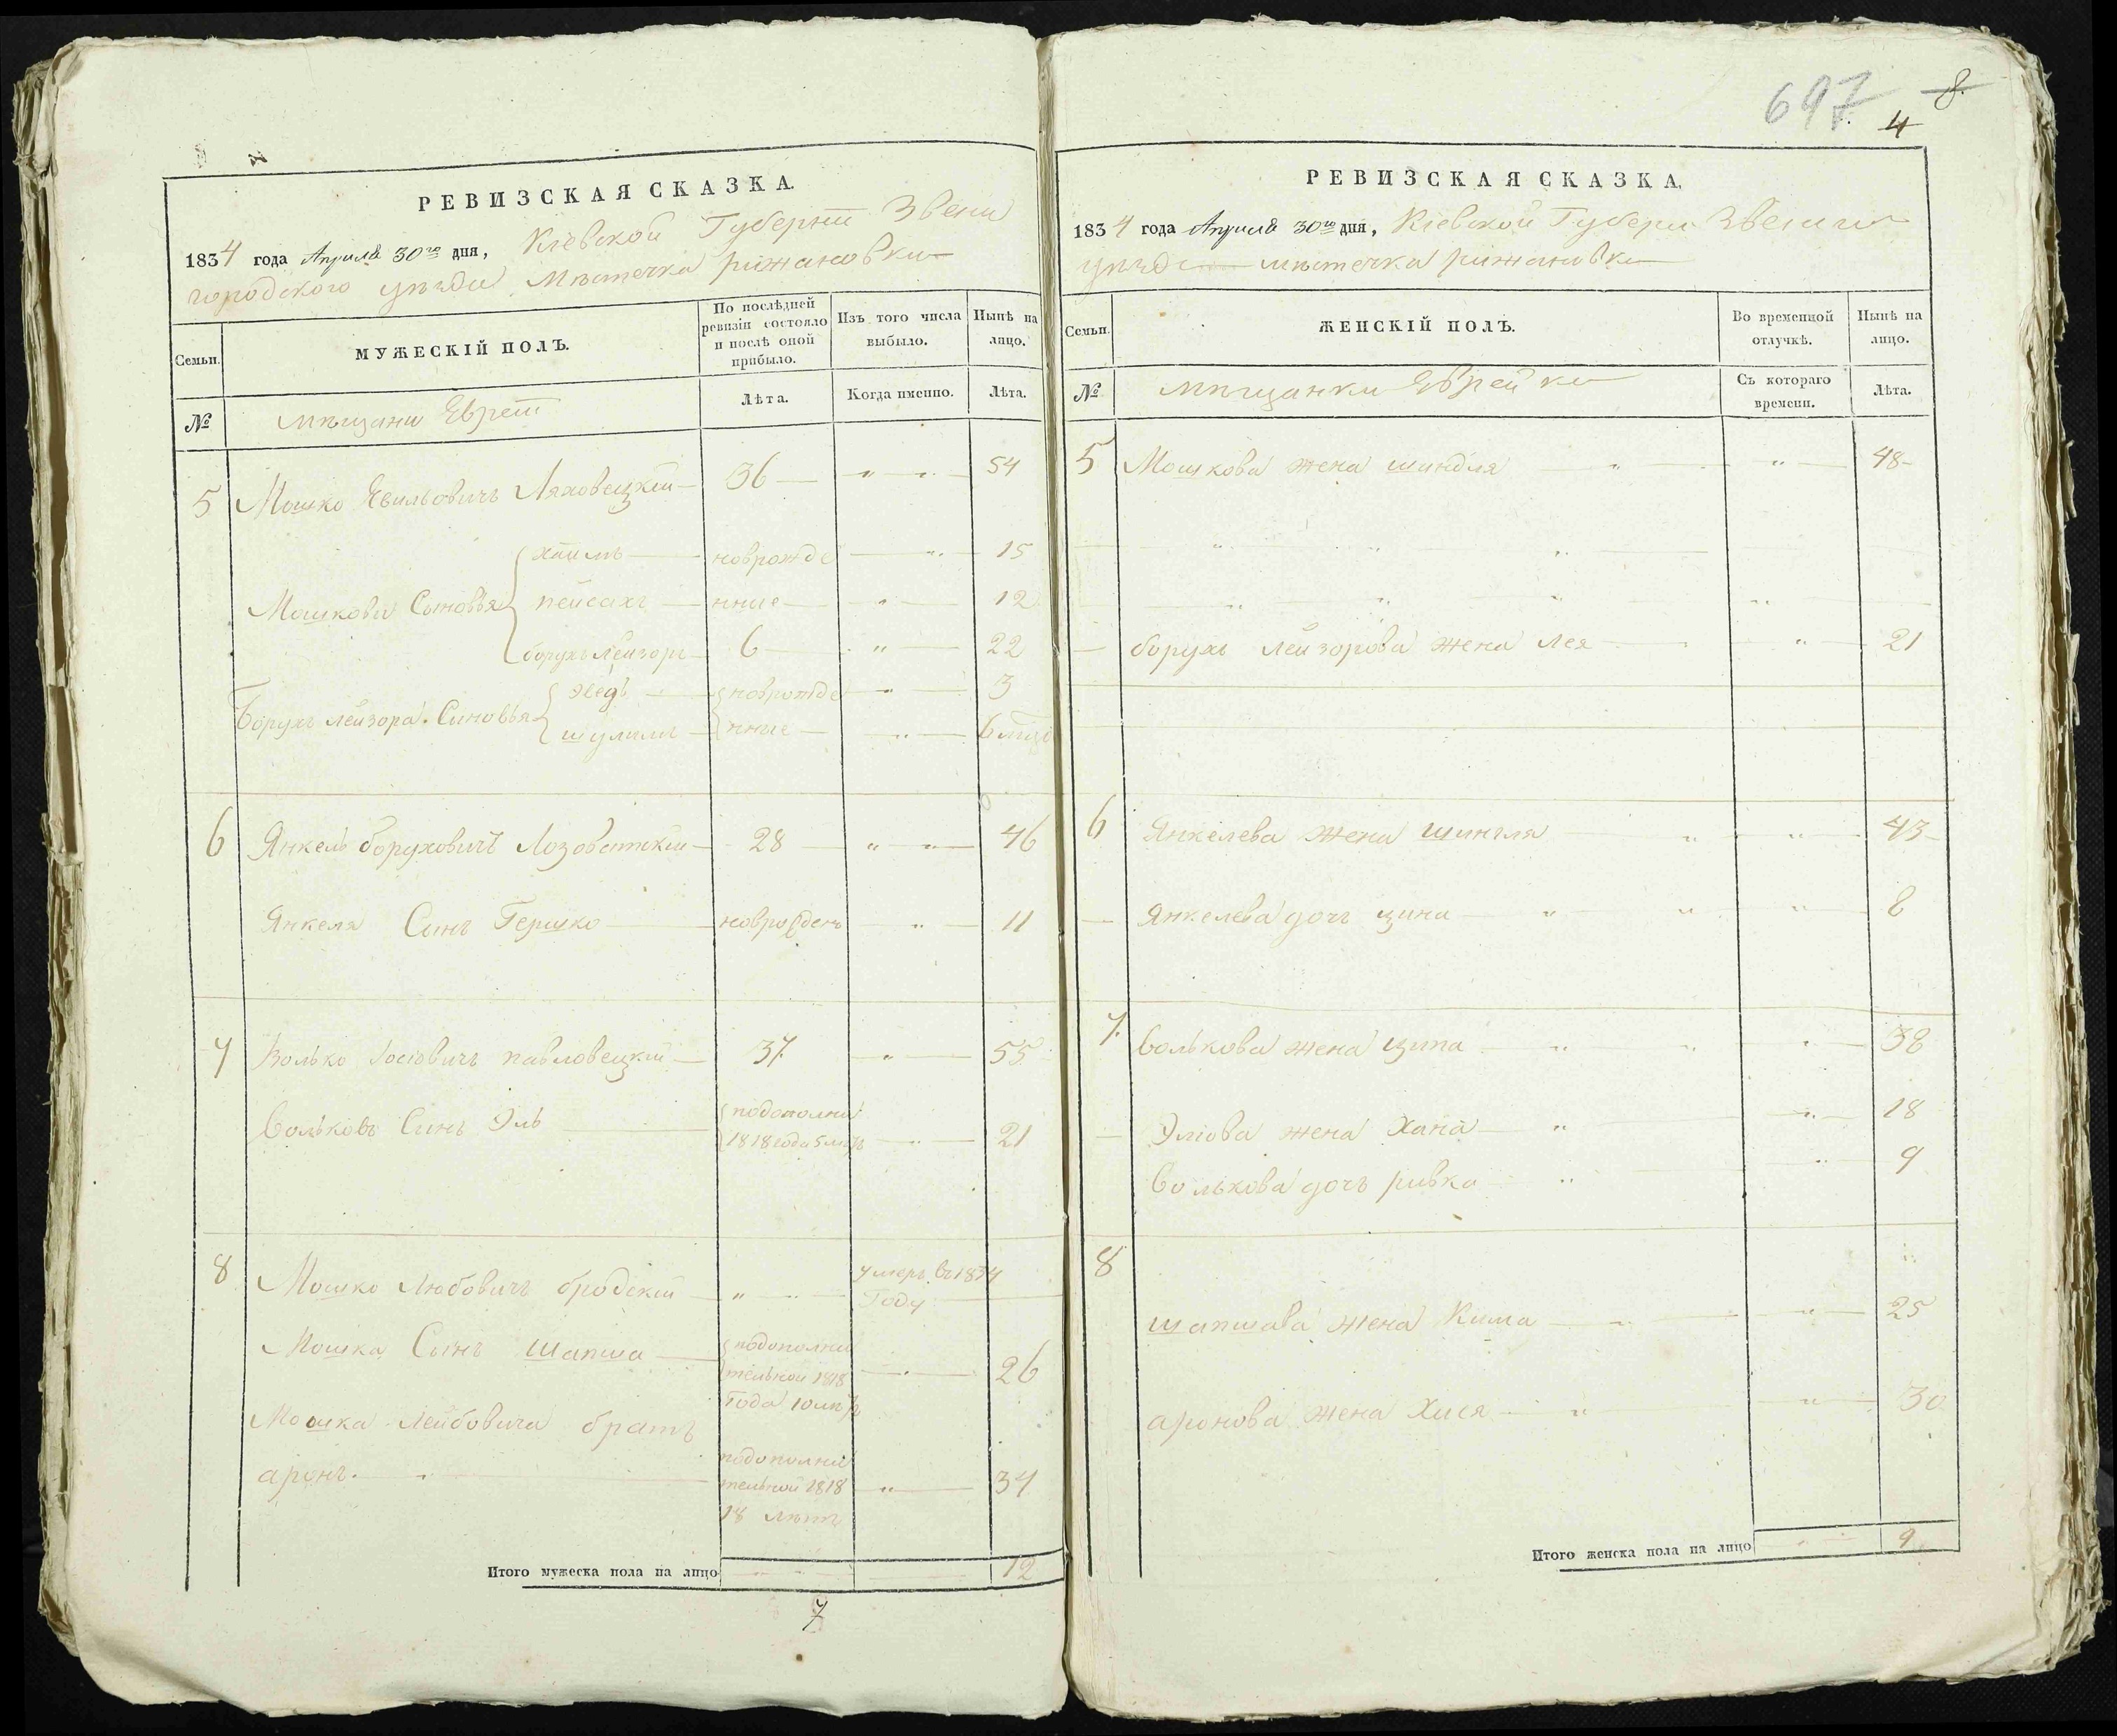 РЕВИЗСКАЯ СКАЗКА.
1834 года Апреля 30го дня, Кіевской Губерніи Звени
городского уѣзда мѣстечка рижановки
Семьи.
МУЖЕСКІЙ ПОЛЪ.
По послѣдней
ревизіи состояло
и послѣ оной
прибыло.
Изъ того числа
выбыло.
Нынѣ на
лицо.
№
мѣщани Евреи
Лѣта.
Когда именно.
Лѣта.
5 Мошко Евильовичъ Ляховецкій 36 54
хаимъ новрожде 15
Мошкови Сыновья пейсахъ нние 12
борухъ лейзоръ 6 22
новрожде 3
Борухъ лейзора Синовья шулимъ нние 6
6 Янкель боруховичъ 28 46
Янкеля Синъ Гершко новрожденъ 11
7 Волько Іосіовичъ павловецкій 37 55
Вольковъ Синъ Эль подополни
1818 года 5 21
8 Мошко Любовичъ бродскій умеръ въ 1834
Году
Мошка Сынъ Шапша подополни
тельной 1818 26
Года 10
Мошка Лейбовича братъ
аронъ. подополни
тельной 1818 34
18 лѣтъ
Итого мужеска пола на лицо 12
7
697 8.
4
РЕВИЗСКАЯ СКАЗКА.
1834 года Апреля 30го дня, Кіевской Губерн Звениг
уѣзда мѣстечка рижановки
Семьи.
ЖЕНСКІЙ ПОЛЪ.
Во временной
отлучкѣ.
Нынѣ на
лицо.
№
мѣщанки Еврейки
Съ котораго
времени.
Лѣта.
5 Мошкова жена шиндля 48
борухъ лейзорова жена лея 21
6 Янкелева жена шингля 43
Янкелева дочъ цина 8
7. Волькова жена ципа 38
Эліова жена Хана 18
Волькова дочъ ривка 9
8
шапшава жена Кима 25
аронова жена Хися 30
Итого женска пола на лицо 9